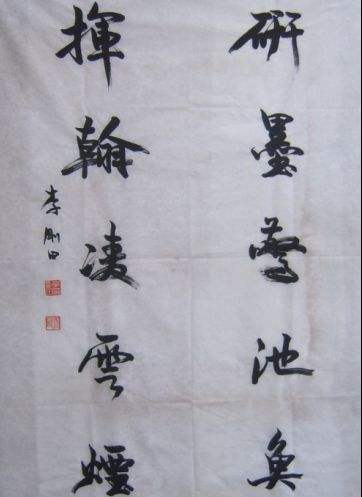 研墨驚池魚
揮翰凌雲煙
李剛田